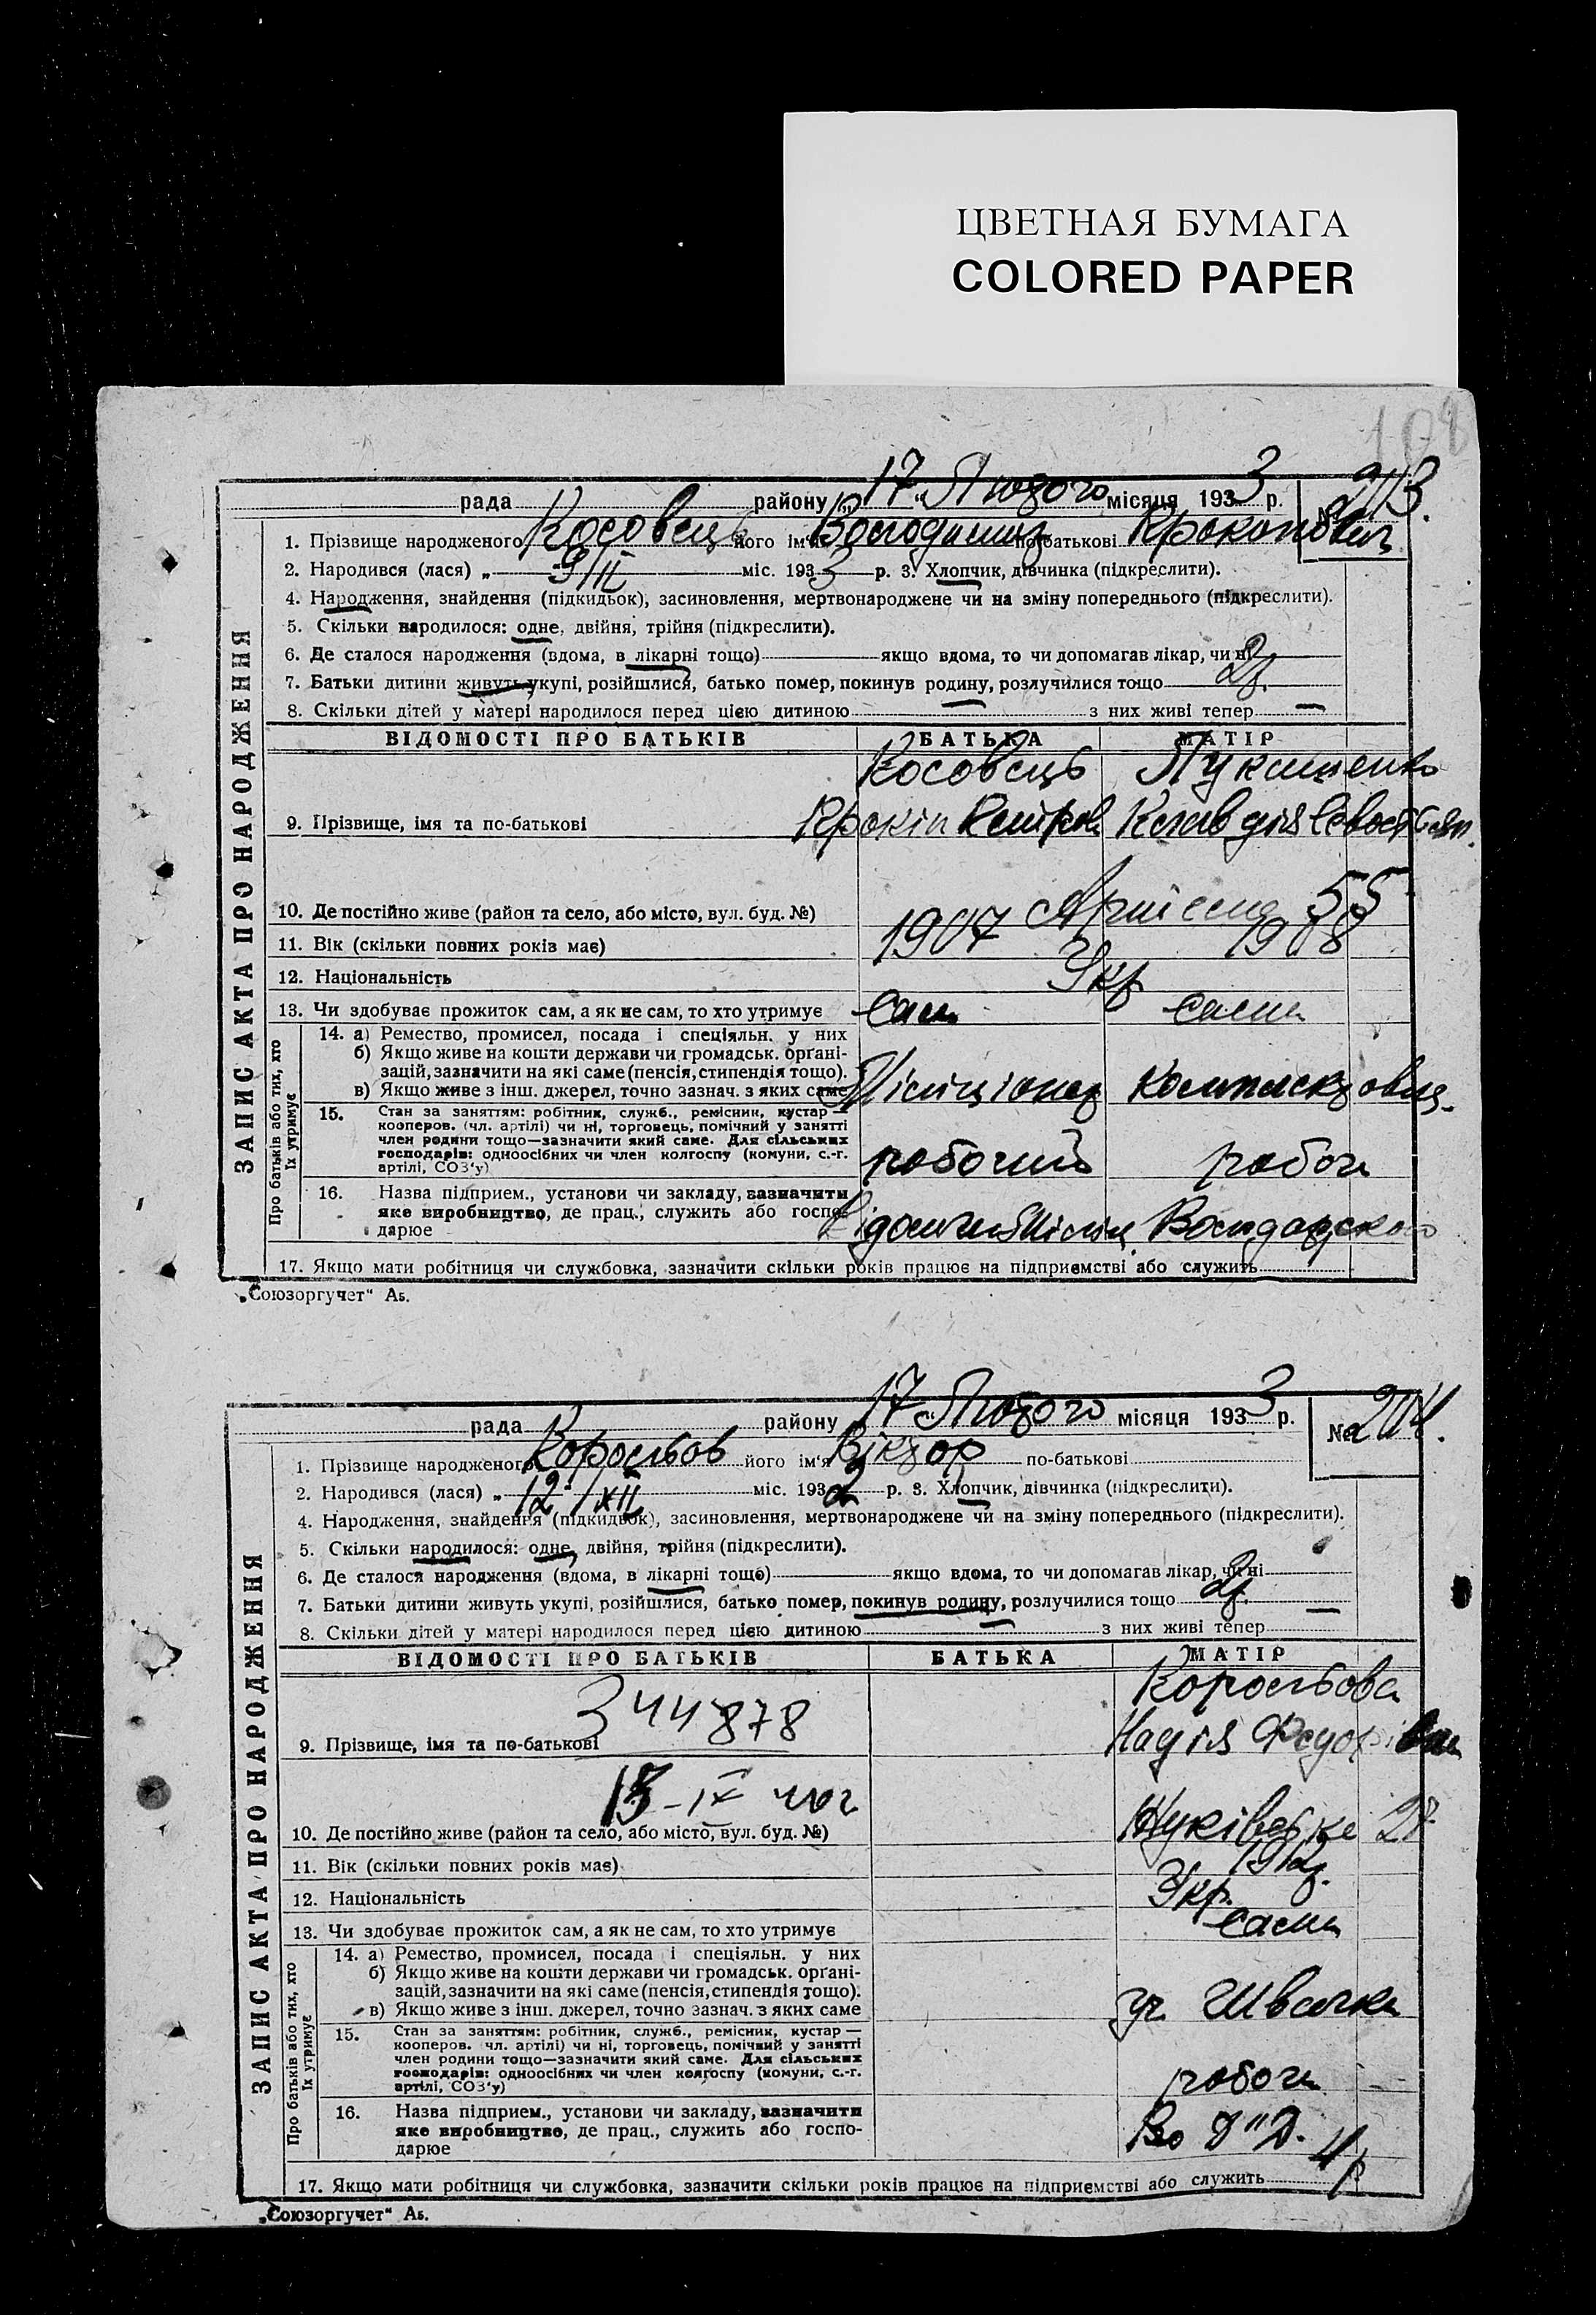 ЦВЕТНАЯ БУМАГА
COLORED PAPER
108
ЗАПИС АКТА ПРО НАРОДЖЕННЯ
рада району „17“ Лютого місяця 1933 р. № 203.
1. Прізвище народженого Косовець його ім'я Володимир по-батькові Прокопович
2. Народився (лася) „ 9/II міс. 1933 р. 3. Хлопчик, дівчинка (підкреслити).
4. Народження, знайдення (підкидьок), засиновлення, мертвонароджене чи на зміну попереднього (підкреслити).
5. Скільки народилося: одне, двійня, трійня (підкреслити).
6. Де сталося народження (вдома, в лікарні тощо) якщо вдома, то чи допомагав лікар, чи ні
7. Батьки дитини живуть укупі, розійшлися, батько помер, покинув родину, розлучилися тощо
8. Скільки дітей у матері народилося перед цією дитиною — з них живі тепер —
ВІДОМОСТІ ПРО БАТЬКІВ БАТЬКА МАТІР
Косовець Лукашенко
9. Прізвище, імя та по-батькові Прокіп Петров Клавдія Севастян.
10. Де постійно живе (район та село, або місто, вул. буд. №) 55
11. Вік (скільки повних років має) 1907 1908
12. Національність Укр
13. Чи здобуває прожиток сам, а як не сам, то хто утримує сам сама
Про батьків або тих, хто їх утримує
14. а) Ремество, промисел, посада і спеціяльн. у них
б) Якщо живе на кошти держави чи громадськ. орґані-
зацій, зазначити на які саме (пенсія, стипендія тощо).
в) Якщо живе з інш. джерел, точно зазнач. з яких саме Міліціонер
15. Стан за заняттям: робітник, служб., ремісник, кустар —
кооперов. (чл. артілі) чи ні, торговець, помічний у занятті
член родини тощо—зазначити який саме. Для сільських
господарів: одноосібних чи член колгоспу (комуни, с.-г.
артілі, СОЗ'у) робочий робоч
16. Назва підприєм., установи чи закладу, зазначити
яке виробництво, де прац., служить або госпо-
дарює
17. Якщо мати робітниця чи службовка, зазначити скільки років працює на підприємстві або служить
„Союзоргучет“ Аб.
ЗАПИС АКТА ПРО НАРОДЖЕННЯ
рада району „17“ Лютого місяця 1933 р. № 204.
1. Прізвище народженого Коростьов його ім'я Віктор по-батькові
2. Народився (лася) „ 12/XII міс. 1932 р. 3. Хлопчик, дівчинка (підкреслити).
4. Народження, знайдення (підкидьок), засиновлення, мертвонароджене чи на зміну попереднього (підкреслити).
5. Скільки народилося: одне, двійня, трійня (підкреслити).
6. Де сталося народження (вдома, в лікарні тощо) якщо вдома, то чи допомагав лікар, чи ні
7. Батьки дитини живуть укупі, розійшлися, батько помер, покинув родину, розлучилися тощо
8. Скільки дітей у матері народилося перед цією дитиною — з них живі тепер —
ВІДОМОСТІ ПРО БАТЬКІВ БАТЬКА МАТІР
Коростьова
344878
9. Прізвище, імя та по-батькові Надія Федорівна
10. Де постійно живе (район та село, або місто, вул. буд. №)
11. Вік (скільки повних років має)
12. Національність Укр.
13. Чи здобуває прожиток сам, а як не сам, то хто утримує сама
Про батьків або тих, хто їх утримує
14. а) Ремество, промисел, посада і спеціяльн. у них
б) Якщо живе на кошти держави чи громадськ. орґані-
зацій, зазначити на які саме (пенсія, стипендія тощо).
в) Якщо живе з інш. джерел, точно зазнач. з яких саме уч. Швачка
15. Стан за заняттям: робітник, служб., ремісник, кустар —
кооперов. чл. артілі) чи ні, торговець, помічний у занятті
член родини тощо—зазначити який саме. Для сільських
господарів: одноосібних чи член колгоспу (комуни, с.-г.
артілі, СОЗ'у) робоч
16. Назва підприєм., установи чи закладу, зазначити
яке виробництво, де прац., служить або госпо-
дарює
17. Якщо мати робітниця чи службовка, зазначити скільки років працює на підприємстві або служить 4 р
„Союзоргучет“ Аб.